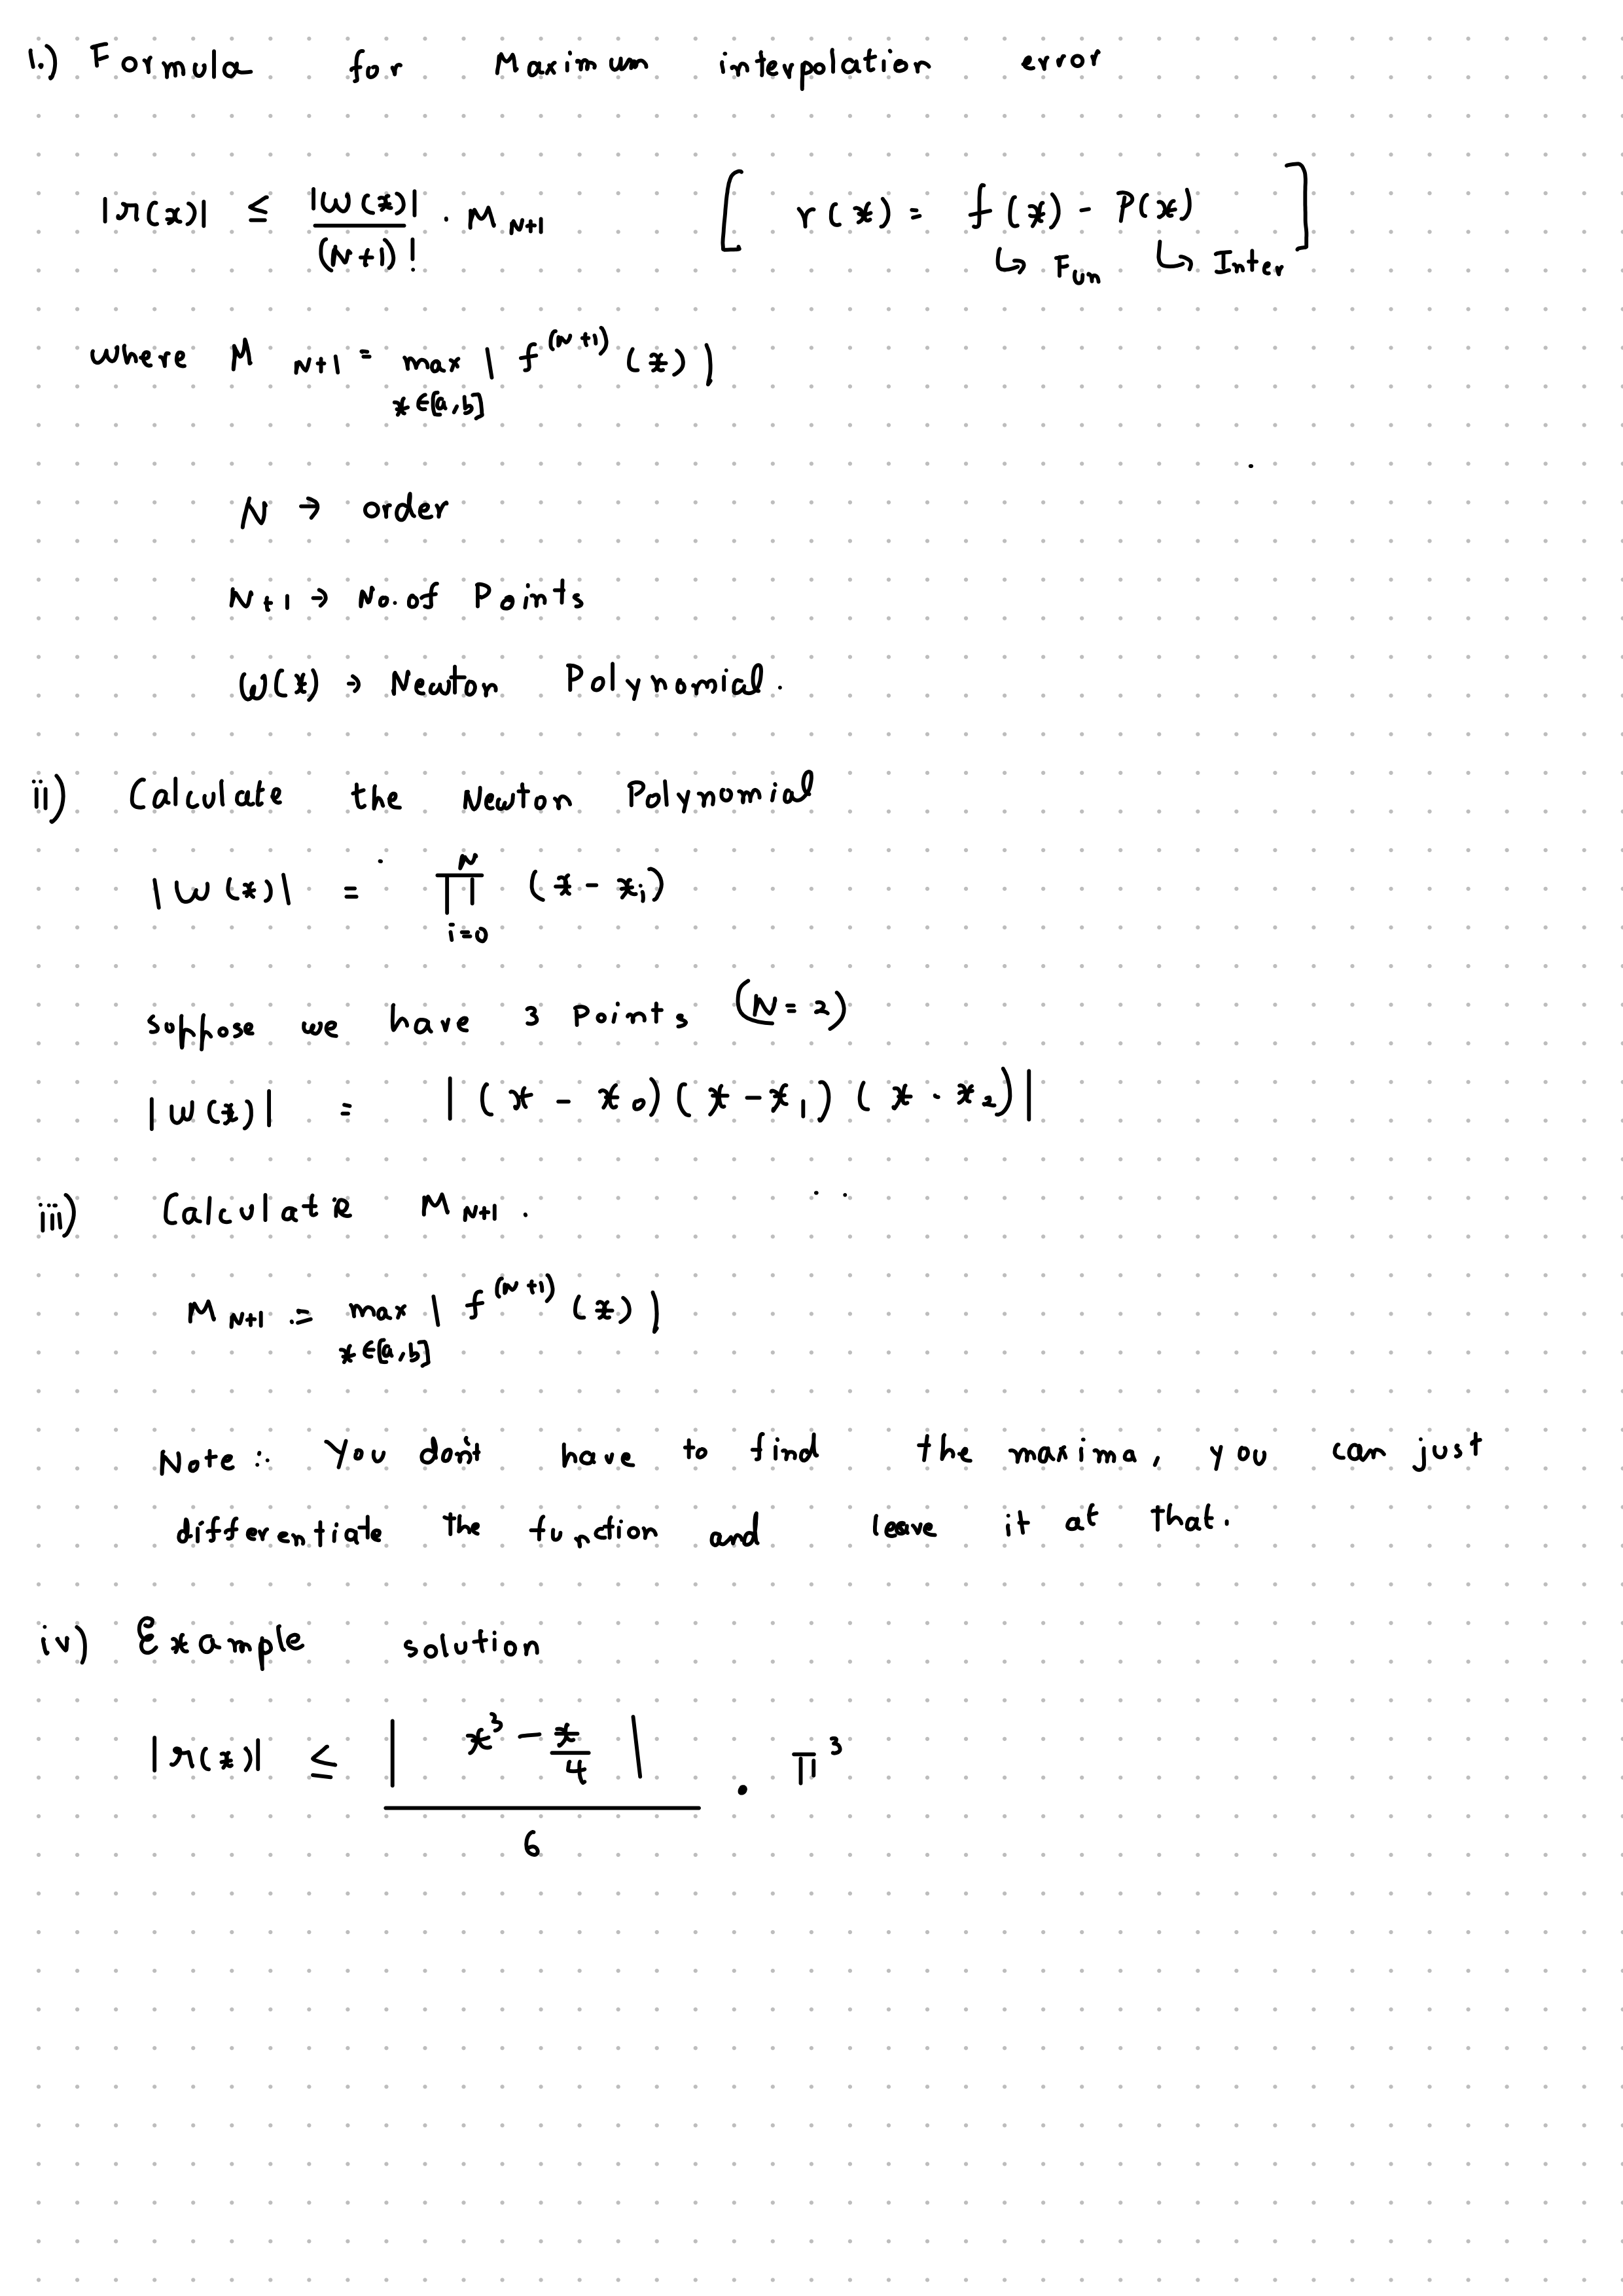 1.) Formula for Maximum interpolation error
|r(x)| ≤ |W(x)| / (N+1)! · M_{N+1} [ r(x) = f(x) - P(x) ]
↳ Fun ↳ Inter
where M_{N+1} = max_{x∈[a,b]} | f^{(N+1)} (x) |
N → order
N+1 → No. of Points
W(x) → Newton Polynomial.
ii) Calculate the Newton Polynomial
|W(x)| = ∏_{i=0}^{N} (x - x_i)
suppose we have 3 Points (N = 2)
|W(x)| = | (x - x_0) (x - x_1) (x - x_2) |
iii) Calculate M_{N+1}.
M_{N+1} := max_{x∈[a,b]} | f^{(N+1)} (x) |
Note :. You don't have to find the maxima, you can just
differentiate the function and leave it at that.
iv) Example solution
|r(x)| ≤ | x^3 - x/4 | / 6 · π^3